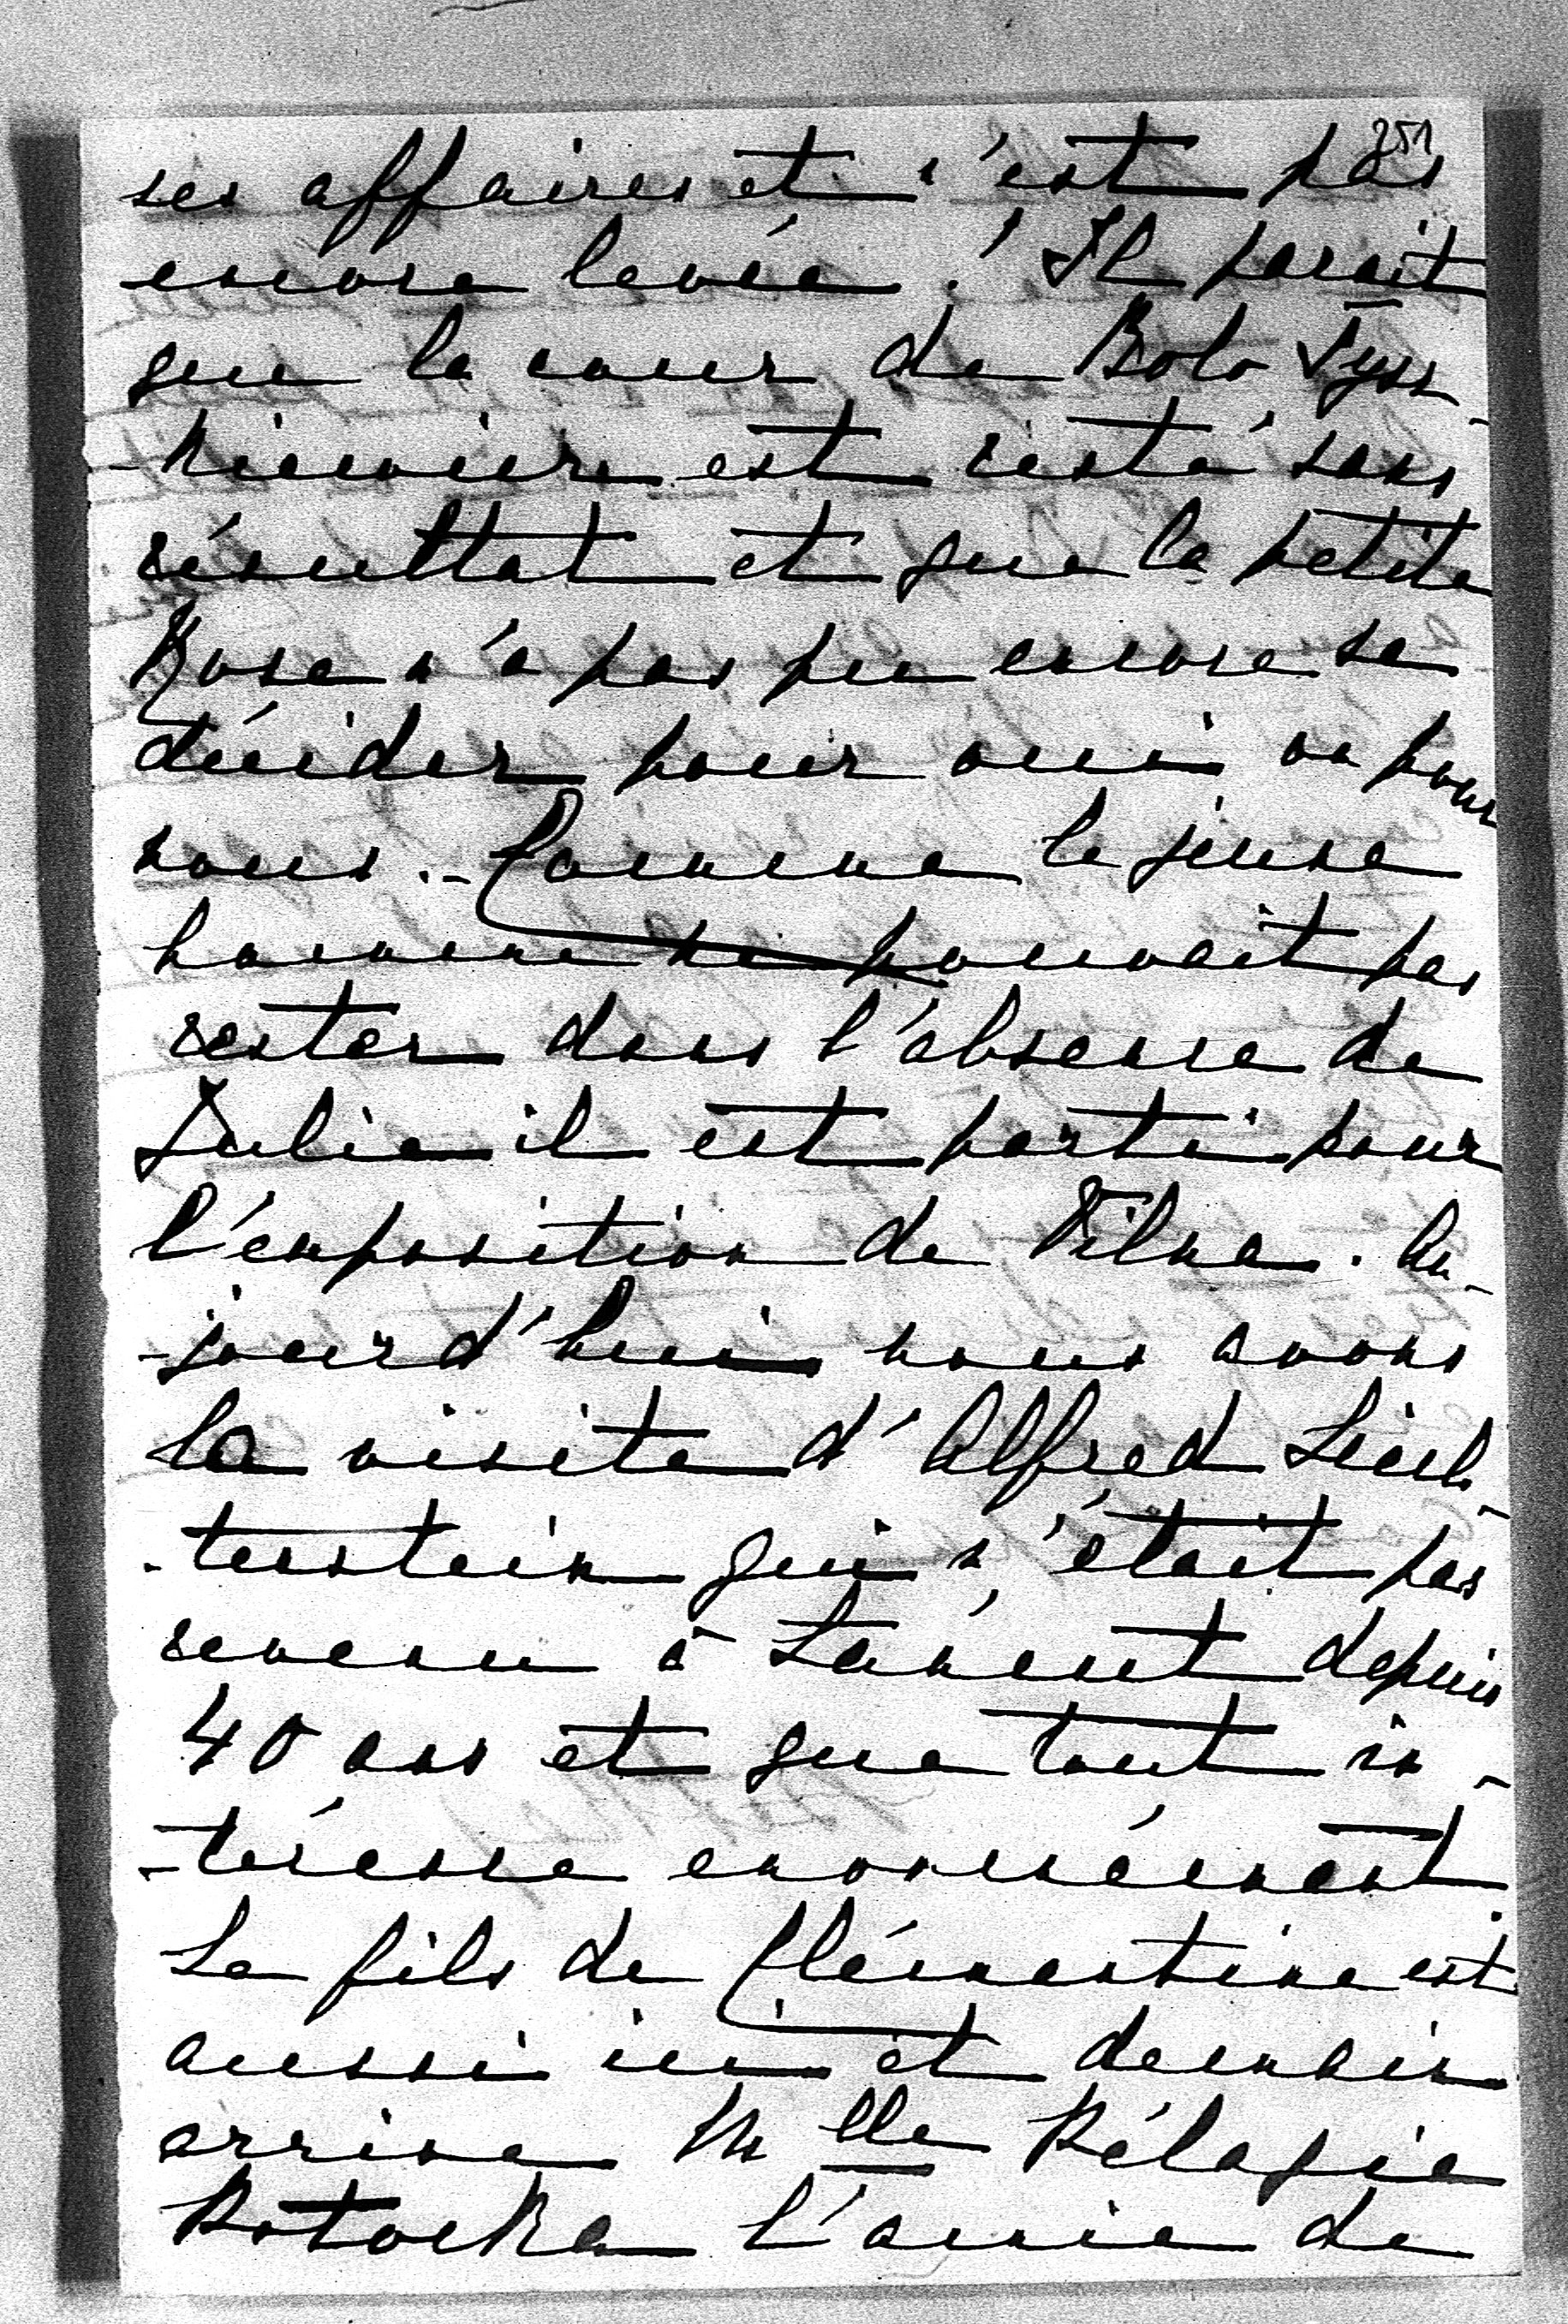 251
ses affaires et n'est pas
encore levée. Il parait
que la cour de Bolo Tysz-
-kiewicz est resté sans
résultat et que la petite
Rose n'a pas pu encore se
décider pour oui ou pour
non. - Comme le jeune
homme ne pouvait pas
rester dans l'absence de
Julie il est parti pour
l'exposition de Vilna. Au-
-jourd'hui nous avons
la visite d'Alfred Liech-
-tenstein qui n'était pas
revenu à Lancut depuis
40 ans et que tout in-
-téresse enormément.
Le fils de Clémentine est
aussi ici et demain
arrive Mlle Pélagie
Potocka l'amie de